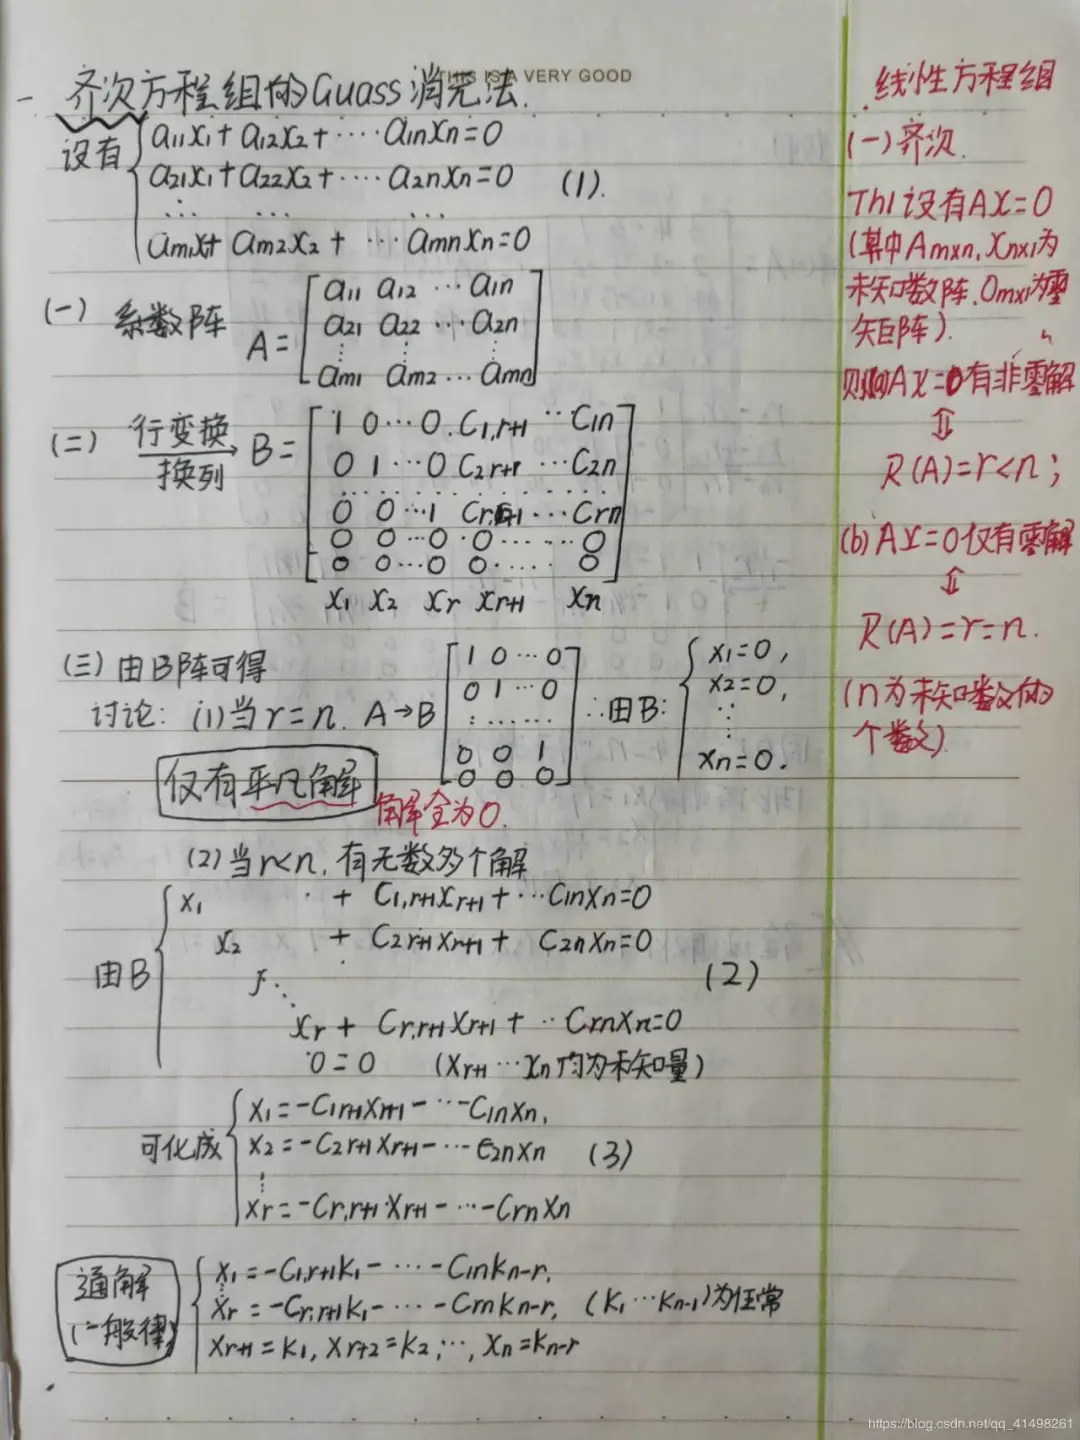 THIS IS A VERY GOOD
一 齐次方程组的Guass消元法.
设有
a11x1+a12x2+····a1nxn=0
a21x1+a22x2+····a2nxn=0 (1).
··· ··· ···
am1x1+am2x2+ ···amnxn=0
(一) 系数阵 A=
a11 a12 ···a1n
a21 a22 ···a2n
⋮ ⋮ ⋮
am1 am2 ···amn
(二) 行变换
换列 B=
1 0···0 C1,r+1 ··C1n
0 1···0 C2r+1 ···C2n
0 0···1 Cr,r+1···Crn
0 0···0 0······0
0 0···0 0·····0
x1 x2 xr xr+1 xn
(三) 由B阵可得
讨论: (1)当r=n. A→B
1 0···0
0 1···0
⋮ ······
0 0 1
0 0 0
∴由B:
x1=0,
x2=0,
⋮
xn=0.
仅有平凡解
解全为0.
(2)当r<n, 有无数多个解
由B
x1 + C1,r+1xr+1+···C1nxn=0
x2 + C2r+1xr+1+ C2nxn=0
(2)
xr+ Cr,r+1xr+1+··Crnxn=0
0=0 (xr+1···xn均为未知量)
可化成
x1=-C1r+1xr+1-···-C1nxn,
x2=-C2r+1xr+1-···C2nxn (3)
⋮
xr=-Cr,r+1xr+1-···-Crnxn
通解
x1=-C1,r+1k1-····-C1nkn-r,
⋮
xr=-Cr,r+1k1-····-Crnkn-r, (k1···kn-1)为任常
xr+1=k1, xr+2=k2,···, xn=kn-r
线性方程组
(一)齐次.
Th1 设有AX=0
(其中Am×n, Xn×1为
未知数阵, 0m×1为零
矩阵).
AX=0有非零解
⇕
R(A)=r<n;
(b) AX=0仅有零解
⇕
R(A)=r=n.
(n为未知数的
个数)
https://blog.csdn.net/qq_41498261